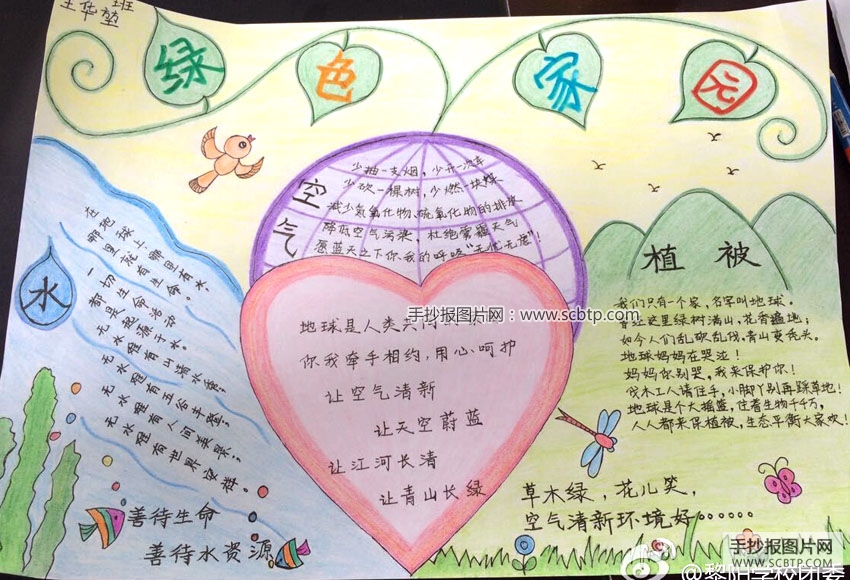 班
王华堃
绿色家园
空气
少抽一支烟，少开一次车
少砍一棵树，少燃一块煤
减少氮氧化物、硫氧化物的排放
降低空气污染，杜绝雾霾天气
愿蓝天之下你、我的呼吸“无忧无虑”！
水
在地球上哪里有水
哪里就有生命。
一切生命活动
都是起源于水。
无水哪有山清水秀，
无水哪有五谷丰登，
无水哪有人间美景，
无水哪有世界安祥。
善待生命
善待水资源
手抄报图片网：www.scbtp.com
地球是人类共同
你我牵手相约，用心呵护
让空气清新
让天空蔚蓝
让江河长清
让青山长绿
植被
我们只有一个家，名字叫地球。
曾经这里绿树满山，花香遍地；
如今人们乱砍乱伐，青山变秃头。
地球妈妈在哭泣！
妈妈你别哭，我来保护你！
伐木工人请住手，小脚丫别再踩草地！
地球是个大摇篮，住着生物千千万，
人人都来保植被，生态平衡大家欢！
草木绿，花儿笑，
空气清新环境好……
手抄报图片网
WWW.SCBTP.COM
@黎阳学校团委